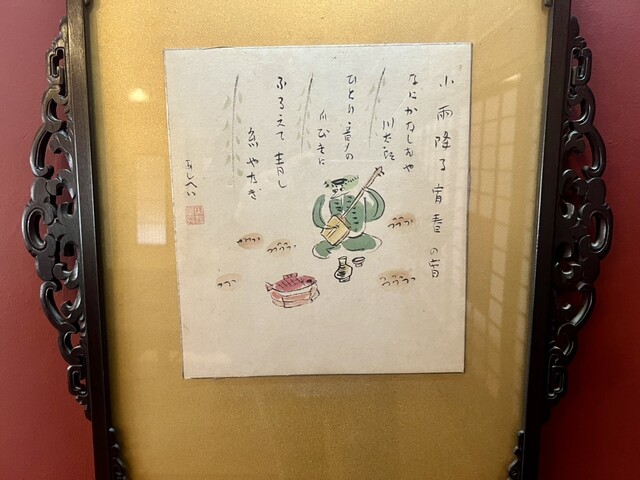 小雨降る宵春の宵
なにかなしむや
川太郎
ひとり音〆の
爪びきに
ふるえて青し
糸やなぎ
あしへい